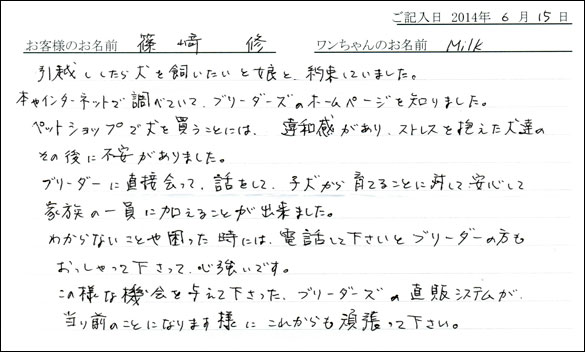 ご記入日 2014年 6月 15日
お客様のお名前 篠﨑 修 ワンちゃんのお名前 Milk
引越ししたら犬を飼いたいと娘と、約束していました。
本やインターネットで調べていて、ブリーダーズのホームページを知りました。
ペットショップで犬を買うことには、違和感があり、ストレスを抱えた犬達の
その後に不安がありました。
ブリーダーに直接会って、話をして、子犬から育てることに対して安心して
家族の一員に加えることが出来ました。
わからないことや困った時には、電話して下さいとブリーダーの方も
おっしゃって下さって、心強いです。
この様な機会を与えて下さった、ブリーダーズの直販システムが、
当り前のことになります様にこれからも頑張って下さい。